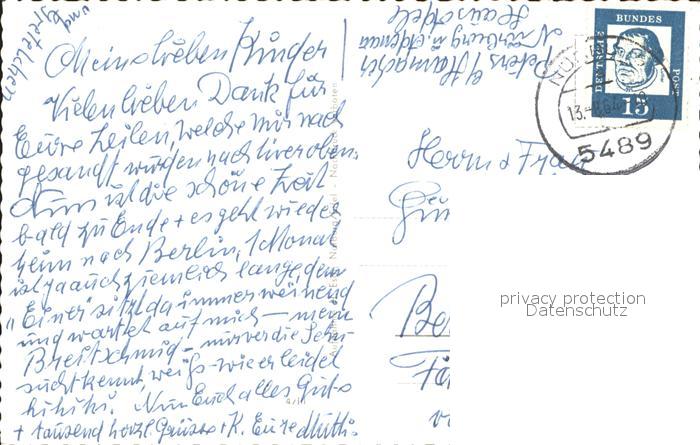 Meine lieben Kinder
Vielen lieben Dank für
Eure Zeilen, welche mir nach
gesandt wurden nach hier oben.
Nun ist die schöne Zeit
bald zu Ende + es geht wieder
heim nach Berlin, 1 Monat
ist ja auch ziemlich lange denn
"Einer" sitzt da immer weinend
und wartet auf mich – mein
Breitschmid – nur wer die Sehn
sucht kennt, weiß wie er leidet
hihihi. Nun Euch alles Gute
+ tausend herzl. Grüsse + K. Eure Mutti
und
Peters
Nürburg ü. Adenau
DEUTSCHE
BUNDES
POST
15
5489
Herrn & Frau
Be
privacy protection
Datenschutz